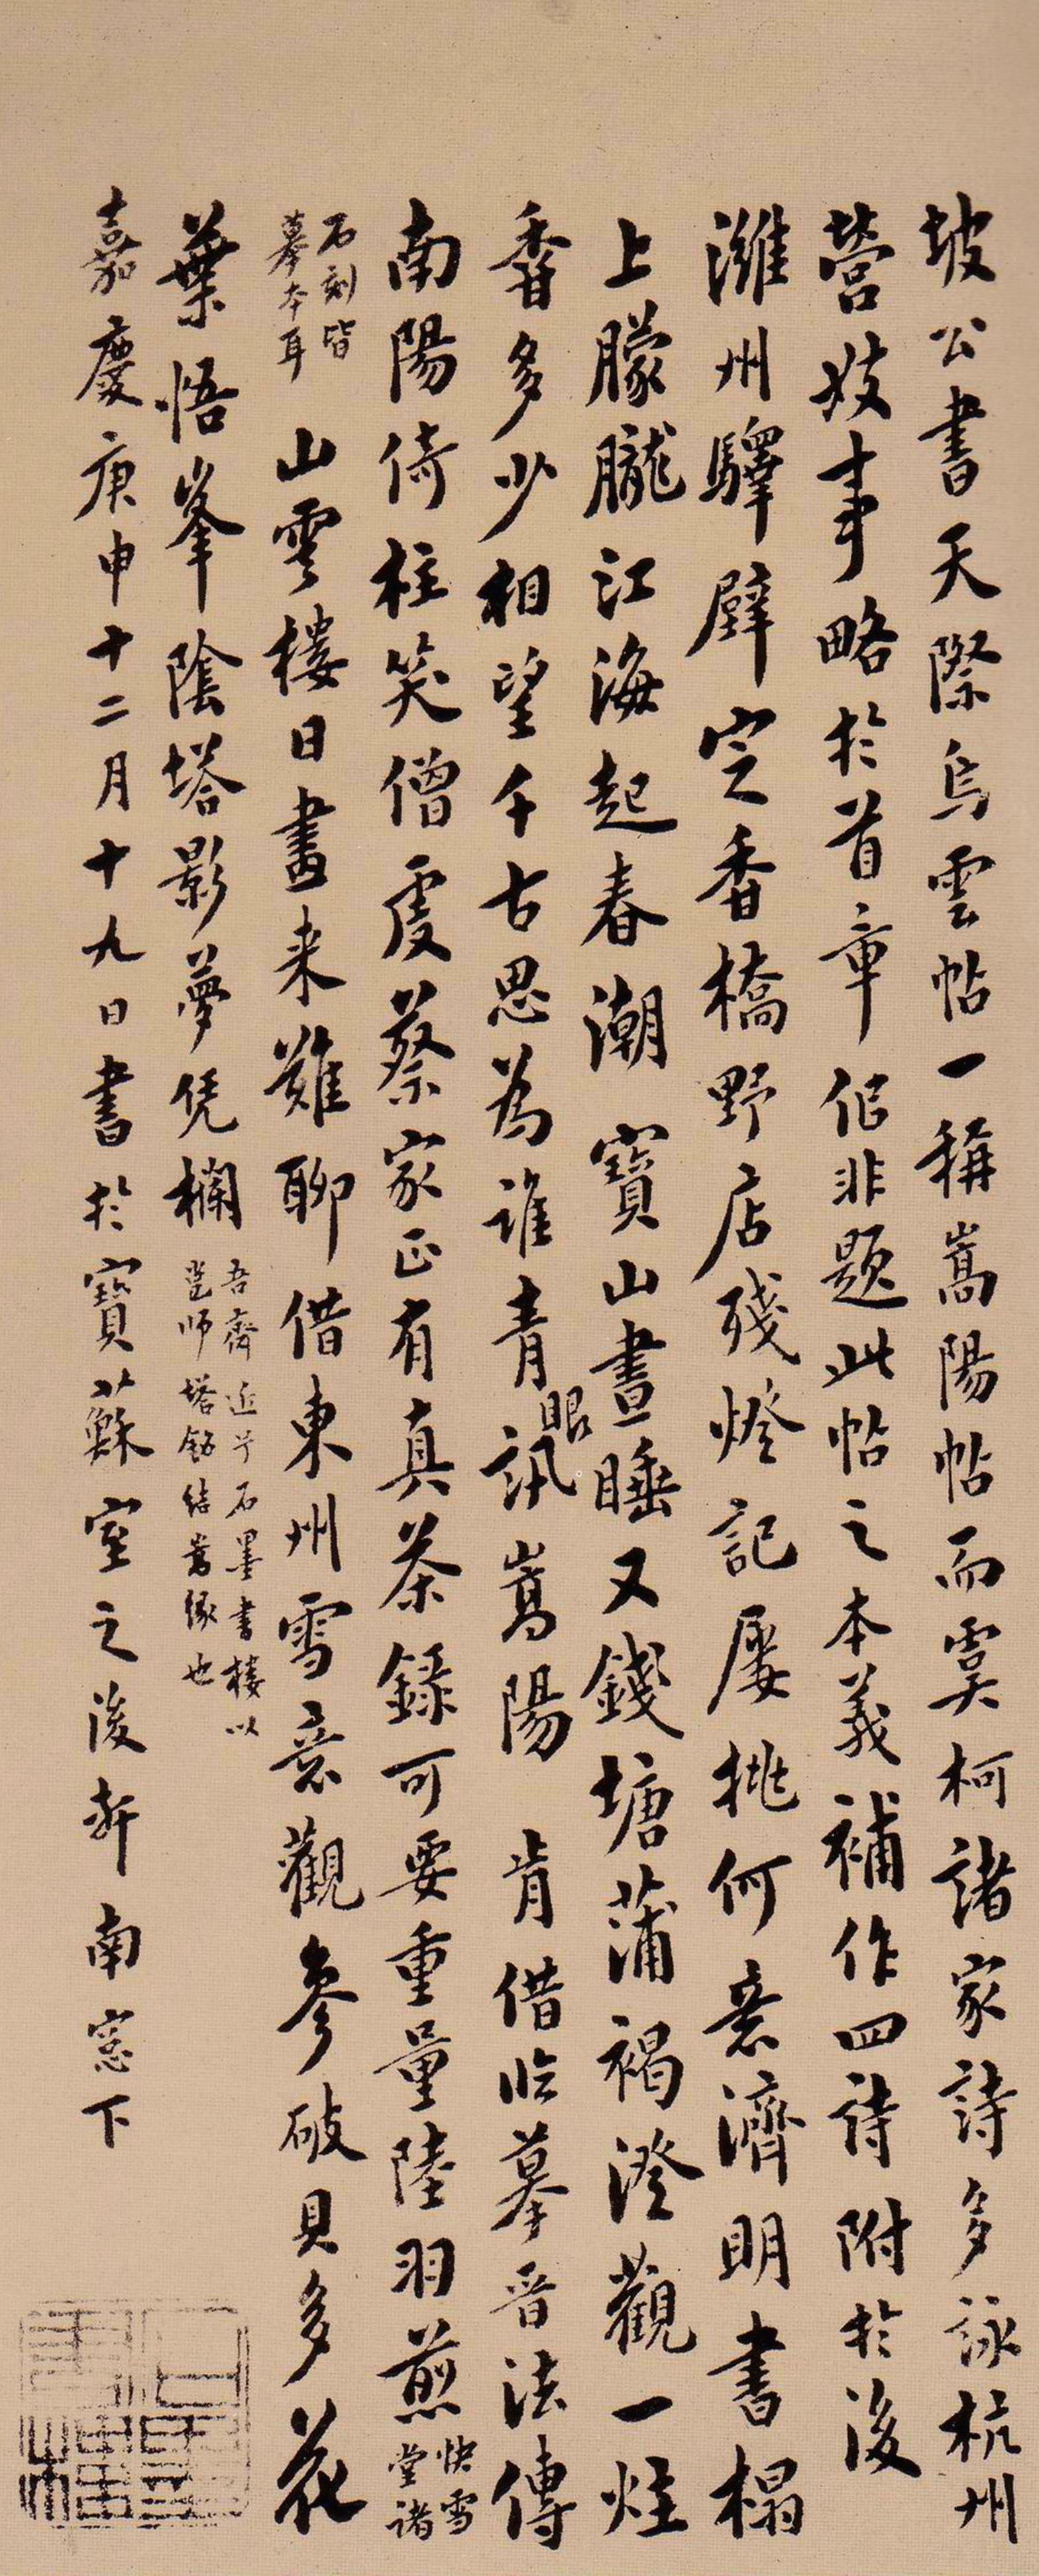 坡公書天際烏雲帖一稱嵩陽帖而虞柯諸家詩多詠杭州
營妓事略於首章似非題此帖之本義補作四詩附於後
濰州驛壁定香橋野店殘燈記屢挑何意濟明書榻
上朦朧江海起春潮 寶山晝睡又錢塘蒲褐澄觀一炷
香多少相望千古思為誰青眼訊嵩陽 肯借臨摹晉法傳
南陽倚柱笑僧虔蔡家正有真茶錄可要重量陸羽煎快雪堂諸
石刻皆摹本耳 山雲樓日畫來難聊借東州雪意觀參破貝多花
葉悟峯陰塔影夢凭欄吾齋近于石墨書樓以邕師塔銘結嵩緣也
嘉慶庚申十二月十九日書於寶蘇室之後軒南窓下